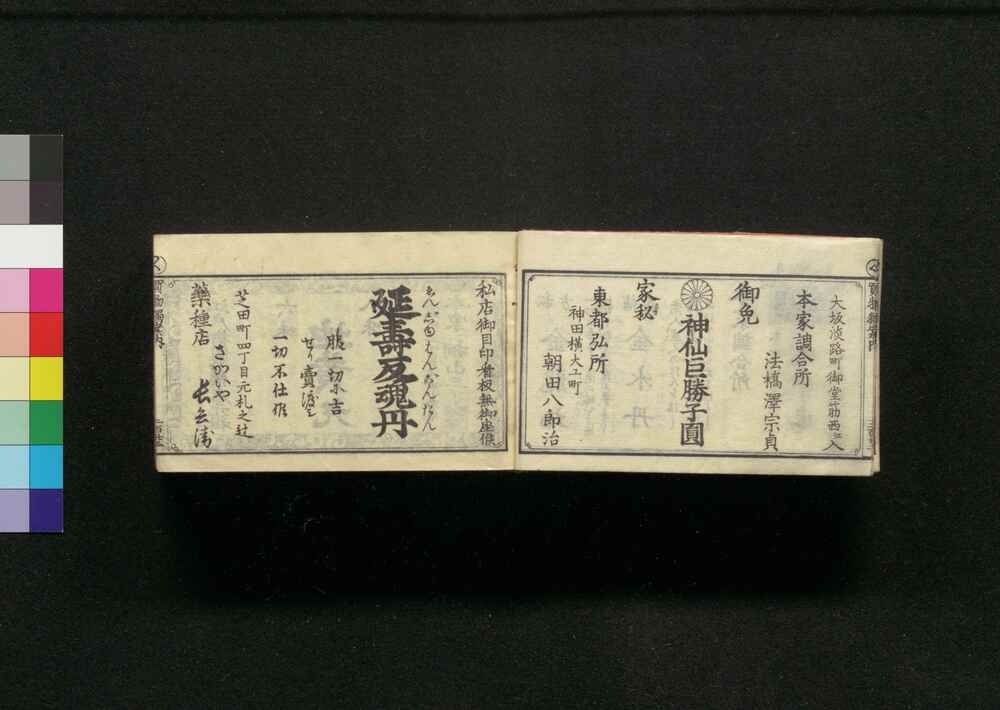 大坂淡路町御堂筋西江入
本家調合所
法橋澤宗貞
御免
神仙巨勝子圓
家秘
東都弘所
神田横大工町
朝田八郎治
私店御目印看板無御座候
ゑんじゆはんごんたん
延壽反魂丹
賣渡
一切不仕候
芝田町四丁目元札之辻
さかいや
藥種店